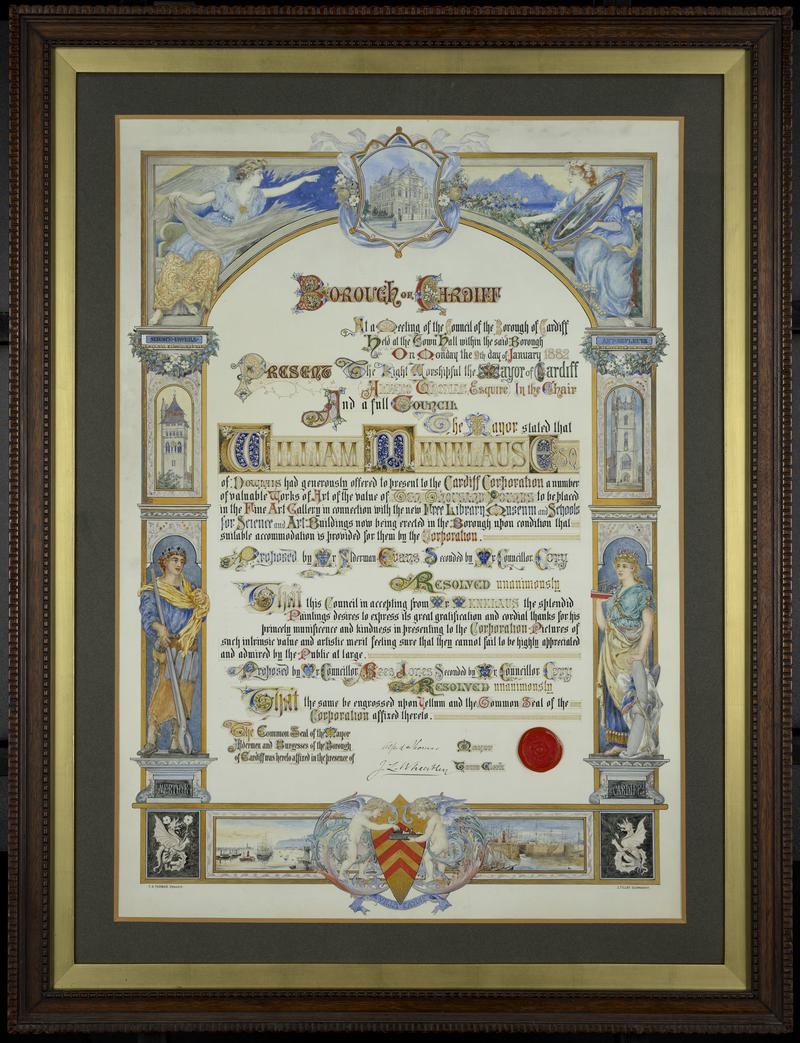 Borough of Cardiff
At a Meeting of the Council of the Borough of Cardiff
Held at the Town Hall within the said Borough
On Monday the 9th day of January 1882
Present The Right Worshipful the Mayor of Cardiff
Alfred Thomas Esquire In the Chair
And a full Council
The Mayor stated that
William Menelaus Esq
of Dowlais had generously offered to present to the Cardiff Corporation a number
of valuable Works of Art of the value of Ten Thousand Pounds to be placed
in the Fine Art Gallery in connection with the new Free Library Museum and Schools
for Science and Art Buildings now being erected in the Borough upon condition that
suitable accommodation is provided for them by the Corporation.
Proposed by Mr Alderman Evans Seconded by Mr Councillor Cory
Resolved unanimously
That this Council in accepting from Mr Menelaus the splendid
Paintings desires to express its great gratification and cordial thanks for his
princely munificence and kindness in presenting to the Corporation Pictures of
such intrinsic value and artistic merit feeling sure that they cannot fail to be highly appreciated
and admired by the Public at large.
Proposed by Mr Councillor Rees Jones Seconded by Mr Councillor Cory
Resolved unanimously
That the same be engrossed upon Vellum and the Common Seal of the
Corporation affixed thereto.
The Common Seal of the Mayor
Aldermen and Burgesses of the Borough
of Cardiff was hereto affixed in the presence of
Alfred Thomas Mayor
J. L. Wheatley Town Clerk
Science Unveils
Art Reflects
Merthyr
Cardiff